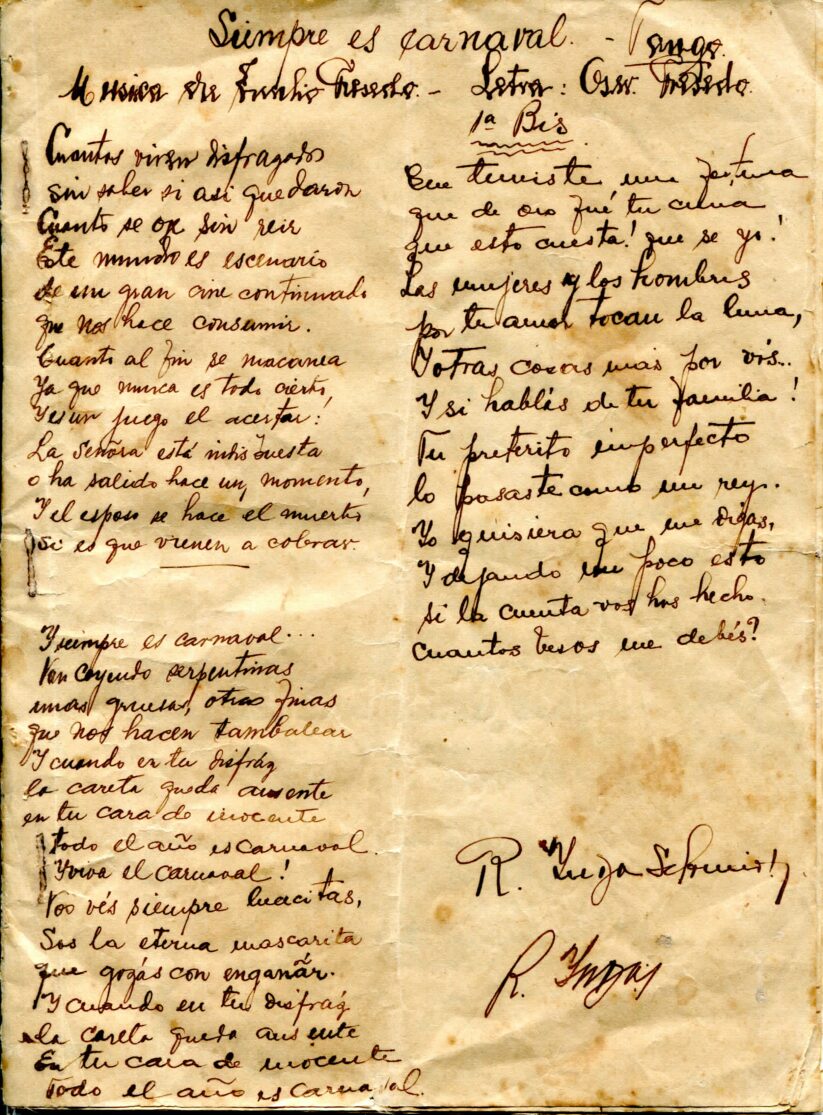 Siempre es carnaval. - Tango.
Musica de Emilio Fresedo. - Letra: Osv. Fresedo.
Cuantos viven disfragados
sin saber si asi quedaron
Cuanto se oye sin reir
Este mundo es escenario
de un gran cine continuado
que nos hace consumir.
Cuanto al fin se macanea
Ya que nunca es todo cierto,
Y es un juego el acertar!
La Señora está indispuesta
o ha salido hace un, momento,
Y el esposo se hace el muerto
Si es que vienen a cobrar.
Y siempre es carnaval...
Van cayendo serpentinas
unas gruesas, otras finas
que nos hacen tambalear
Y cuando en tu disfráz
la careta queda ausente
en tu cara de inocente
todo el año es carnaval.
Y viva el carnaval!
Vos vés siempre lucecitas,
Sos la eterna mascarita
que gozás con engañar.
Y cuando en tu disfráz
la careta queda ausente
En tu cara de inocente
Todo el año es carnaval.
1ª Bis
Que tuviste una fortuna
que de oro fué tu cuna
que esto cuesta! que se yo!
Las mujeres y los hombres
por tu amor tocan la luna,
Y otras cosas mas por vós..
Y si hablás de tu familia!
Tu preterito imperfecto
lo pasaste como un rey.
Yo quisiera que me digas,
Y dejando un poco esto
si la cuenta vos has hecho.
cuantos besos me debés?
R.
R.